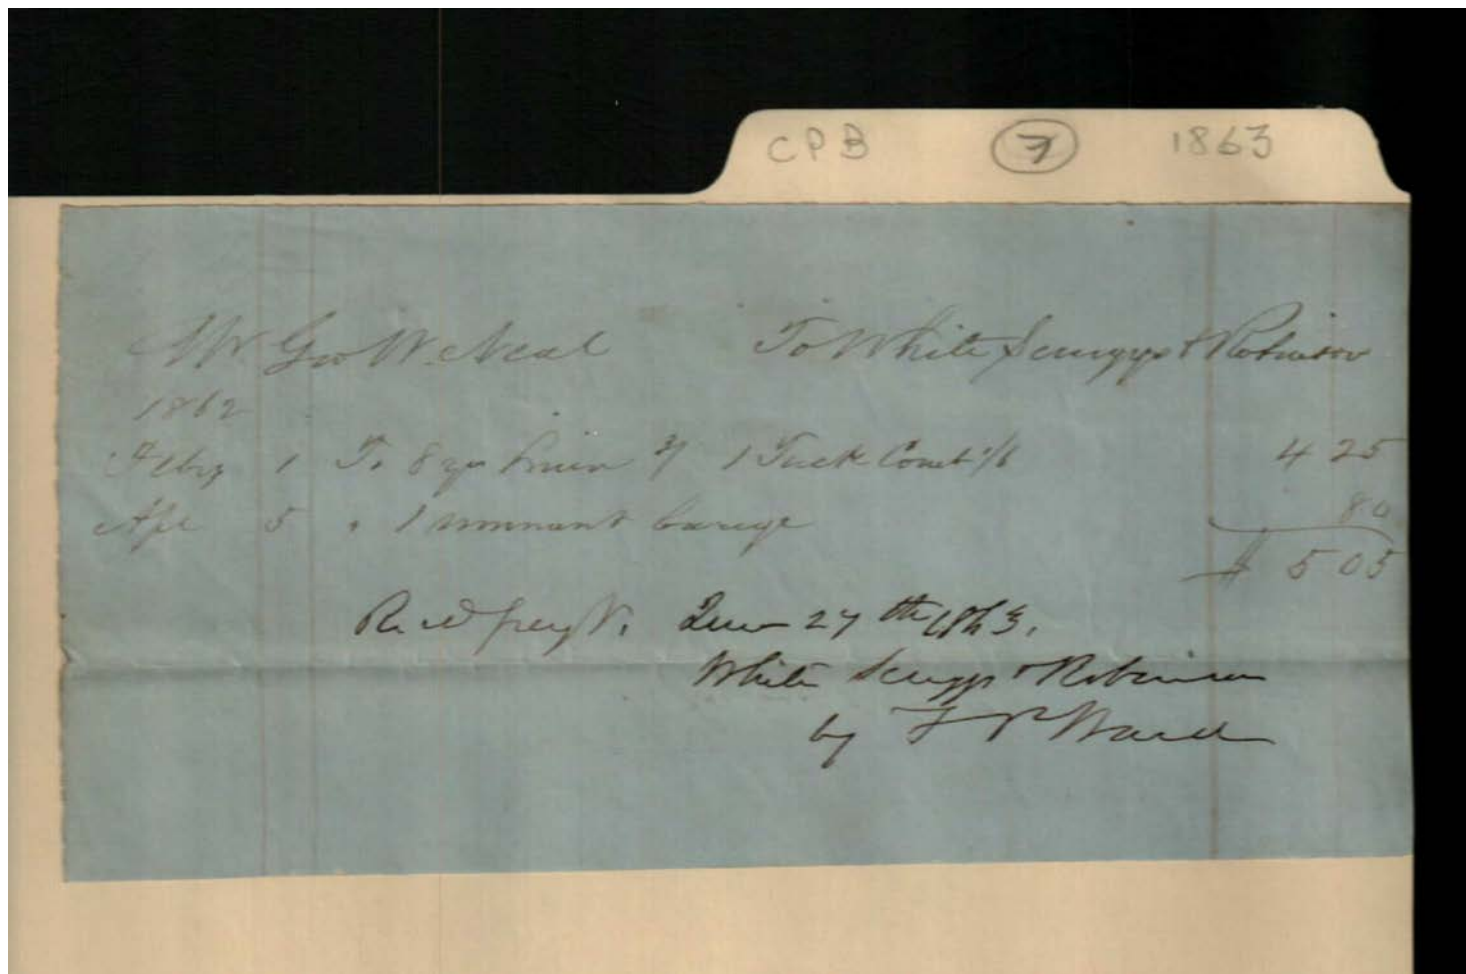 CPB 7 1863
Mr Geo W. Neal To White Scruggs & Robinson
1862
Feby 1 To 8 yds Linen 3/ 1 Tuck Comb 1/6 4 25
Apl 5 " 1 remnant barege 80
$ 5 05
Recd payt. June 27th 1863.
White Scruggs & Robinson
by F P Ward